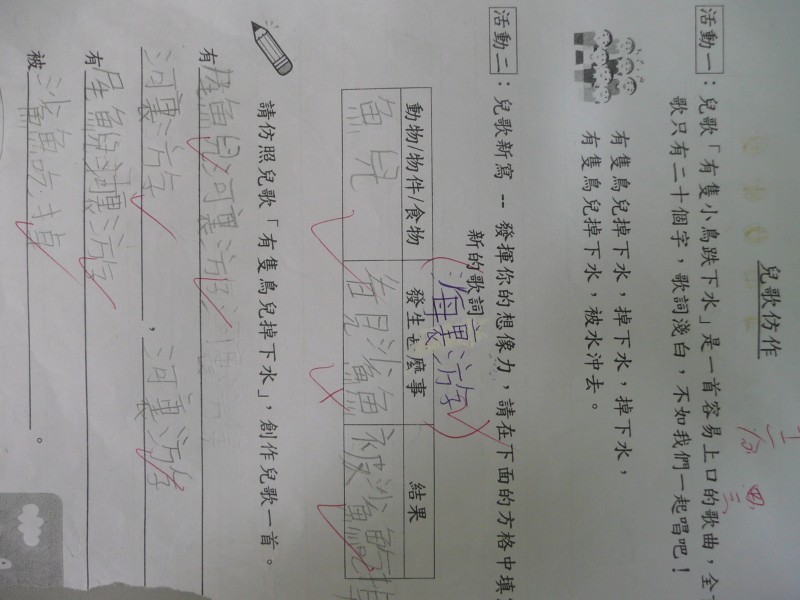 兒歌仿作
活動一：兒歌「有隻小鳥跌下水」是一首容易上口的歌曲，全
歌只有二十個字，歌詞淺白，不如我們一起唱吧！
有隻鳥兒掉下水，掉下水，掉下水，
有隻鳥兒掉下水，被水沖去。
活動二：兒歌新寫 -- 發揮你的想像力，請在下面的方格中填
新的歌詞
海裏游
動物/物件/食物 發生甚麼事 結果
魚兒 看見鯊魚 被鯊魚吃掉
請仿照兒歌「有隻鳥兒掉下水」，創作兒歌一首。
有尾魚兒河裏游
河裏游，河裏游
有尾魚兒河裏游
被鯊魚吃掉。